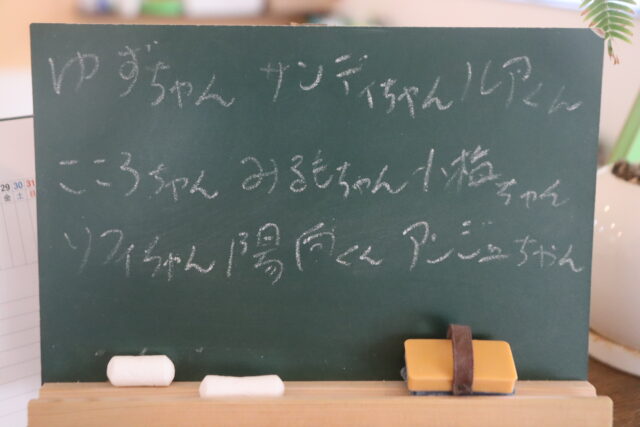 ゆずちゃん サンディちゃん ルアくん
こころちゃん みるもちゃん 小梅ちゃん
ソフィちゃん 陽向くん アンジュちゃん
29 30 31
金 土 日